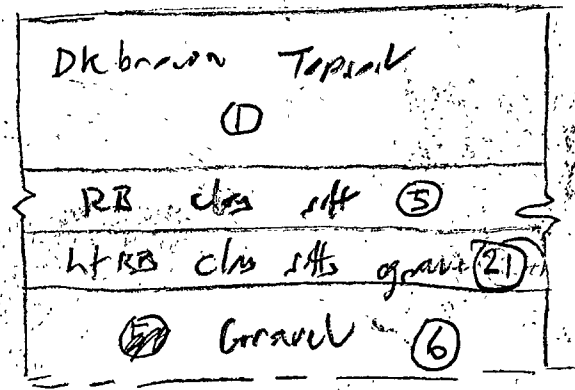 Dk brown Topsoil
①
RB clay silt ⑤
Lt RB clay silts gravel 21
Gravel ⑥